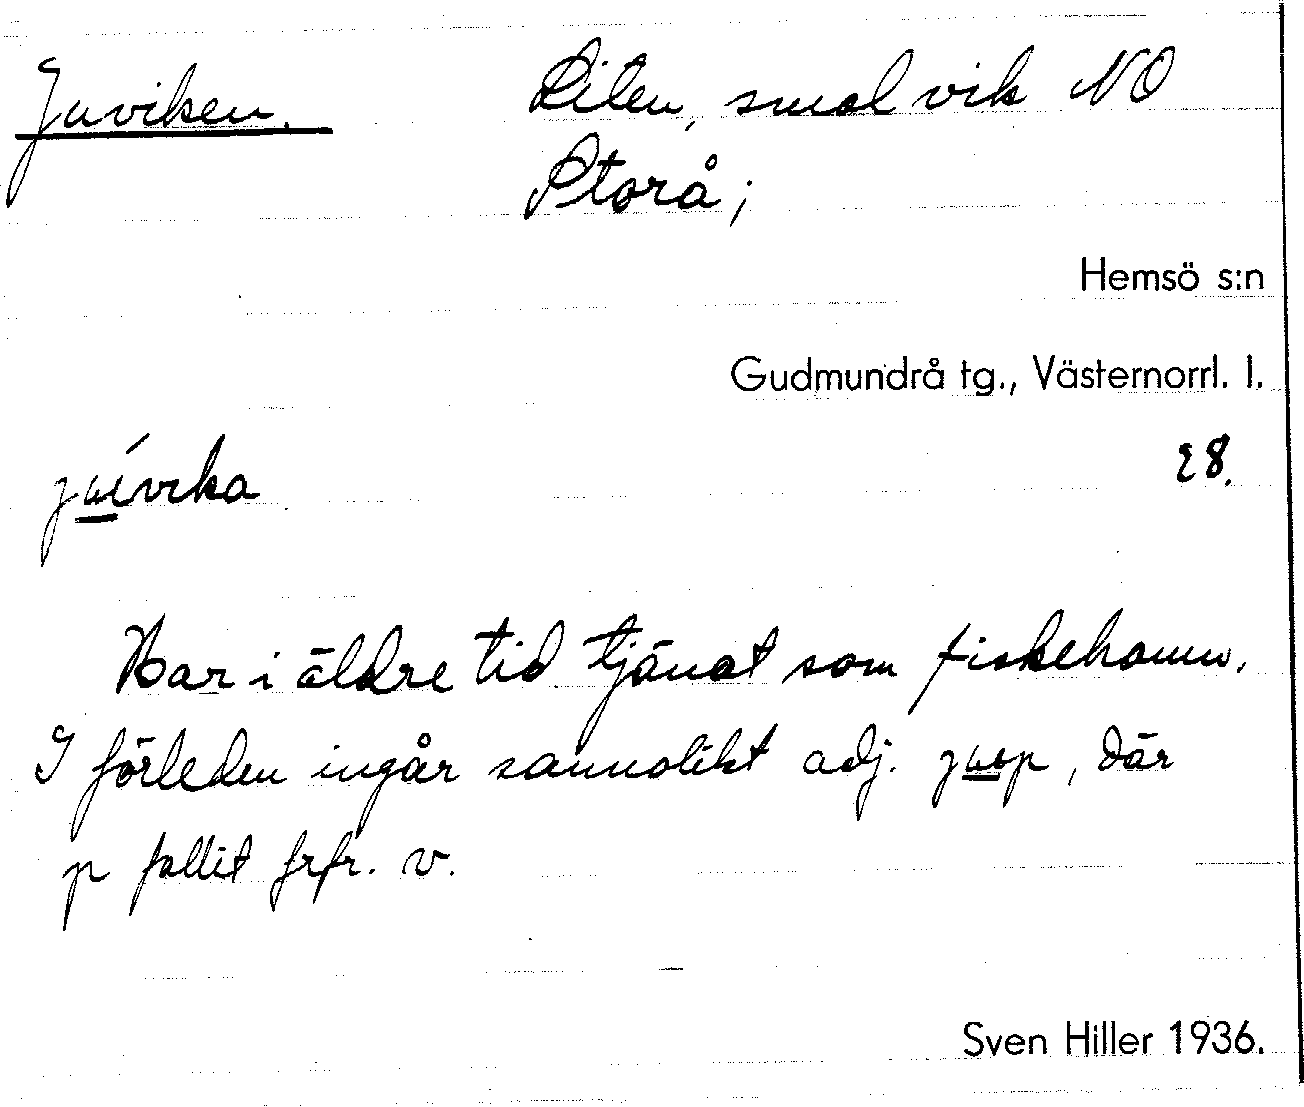 Juviken. Liten, smal vik NO
Storå;
Hemsö s:n
Gudmundrå tg., Västernorrl. l.
28.
Har i äldre tid tjänat som fiskehamn.
I förleden ingår sannolikt adj. , där
p fallit frfr. v.
Sven Hiller 1936.